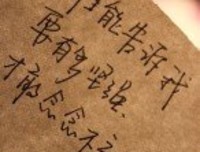 能告诉我
要有多坚强
才敢念念不